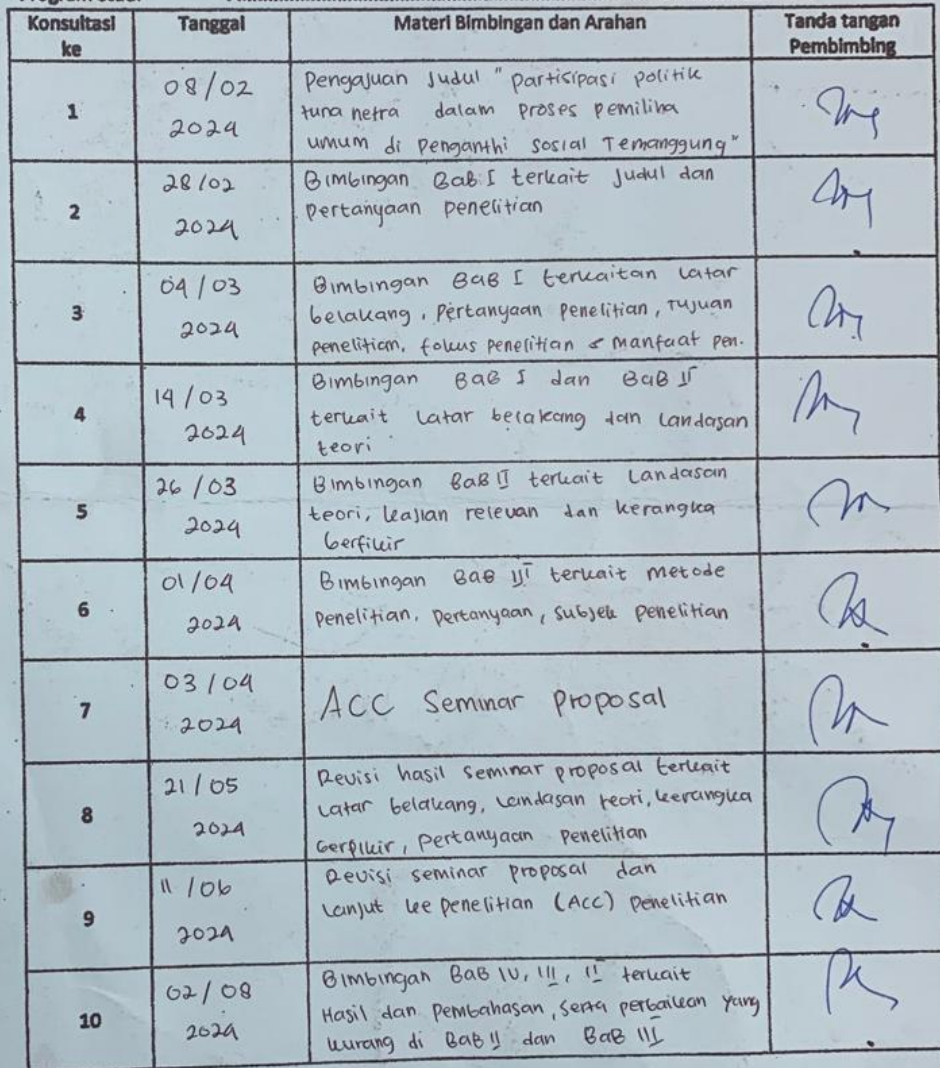 Konsultasi ke
Tanggal
Materi Bimbingan dan Arahan
Tanda tangan Pembimbing
1
08/02
2024
Pengajuan Judul " partisipasi politik
tuna netra dalam proses pemiliha
umum di Penganthi Sosial Temanggung"
2
28/02
2024
Bimbingan Bab I terkait Judul dan
Pertanyaan penelitian
3
04/03
2024
Bimbingan BaB I terkaitan Latar
belakang, Pertanyaan Penelitian, Tujuan
penelitian, fokus penelitian & manfaat pen.
4
14/03
2024
Bimbingan BaB I dan BaB II
terkait Latar belakang dan Landasan
teori
5
26/03
2024
Bimbingan BaB II terkait Landasan
teori, kajian relevan dan kerangka
berfikir
6
01/04
2024
Bimbingan BaB III terkait metode
Penelitian, Pertanyaan, subjek penelitian
7
03/04
2024
ACC Seminar Proposal
8
21/05
2024
Revisi hasil seminar proposal terkait
Latar belakang, Landasan teori, kerangka
berpikir, Pertanyaan Penelitian
9
11/06
2024
Revisi seminar proposal dan
Lanjut ke penelitian (ACC) penelitian
10
02/08
2024
Bimbingan BaB IV, III, II terkait
Hasil dan Pembahasan, serta perbaikan yang
kurang di BaB II dan BaB III